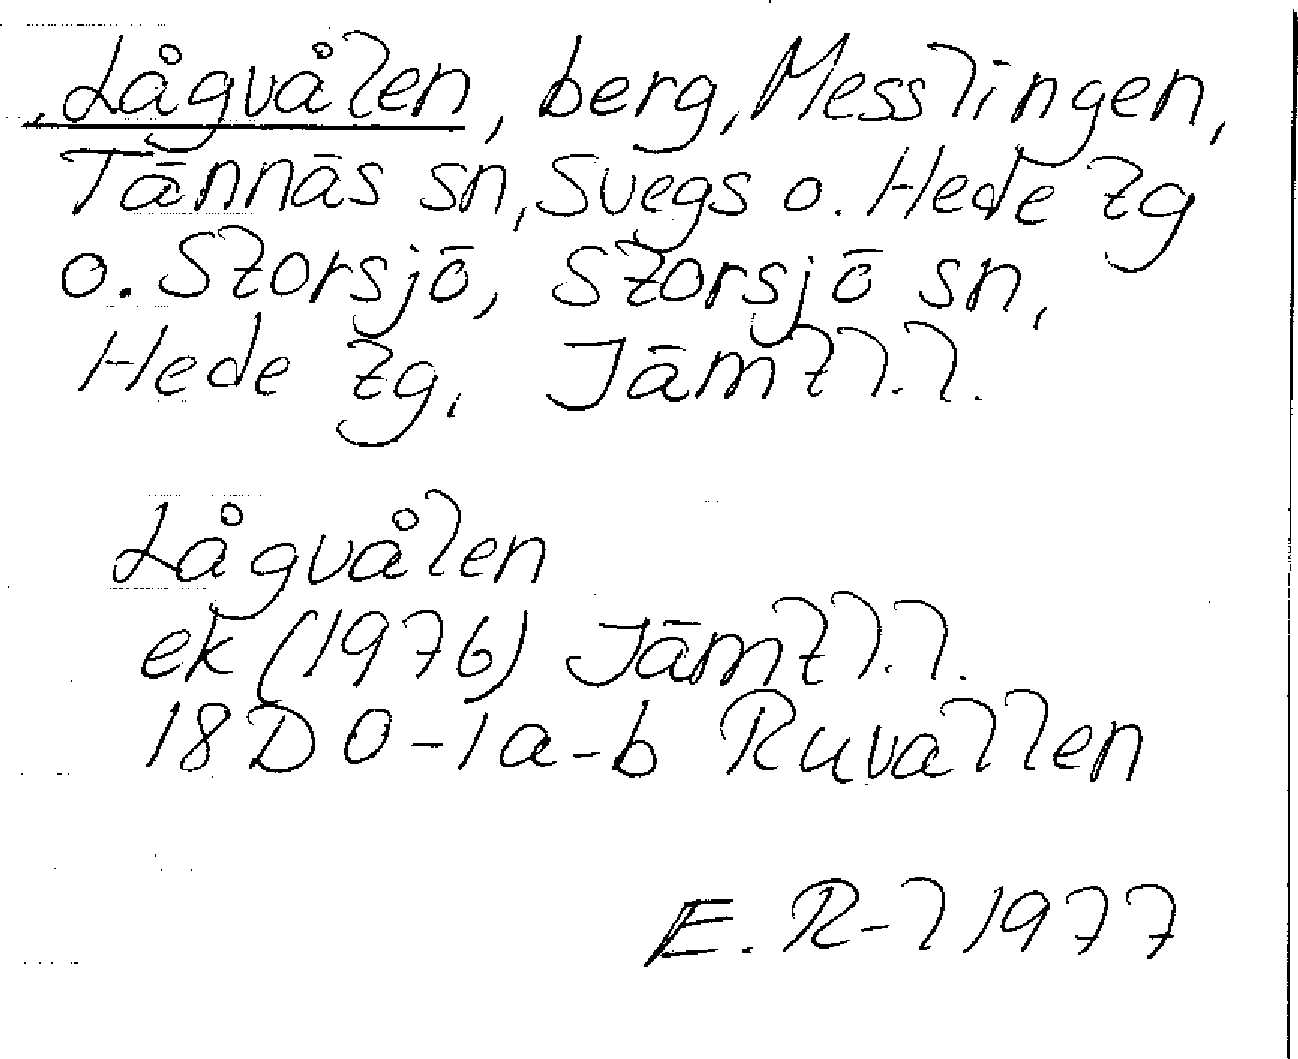 Lågvålen, berg, Messlingen,
Tännäs sn, Svegs o. Hede tg
o. Storsjö, Storsjö sn,
Hede tg, Jämtl. l.
Lågvålen
ek (1976) Jämtl. l.
18D 0-1a-b Ruvallen
E. R-l 1977